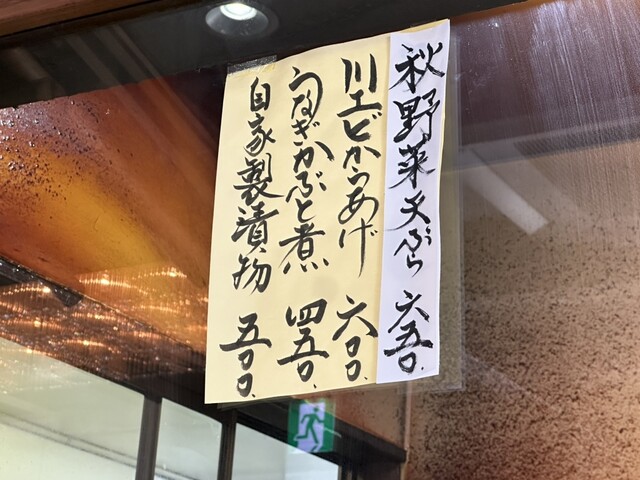 秋野菜天ぷら 六五〇.
川エビからあげ 六〇〇.
うなぎかぶと煮 四五〇.
自家製漬物 五〇〇.